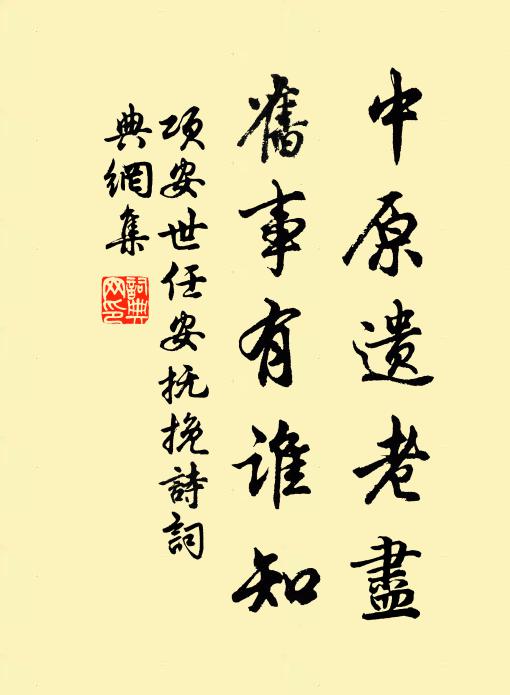 中原遺老盡
舊事有誰知
項安世任安抚挽詩詞
典網集
詞典
网印